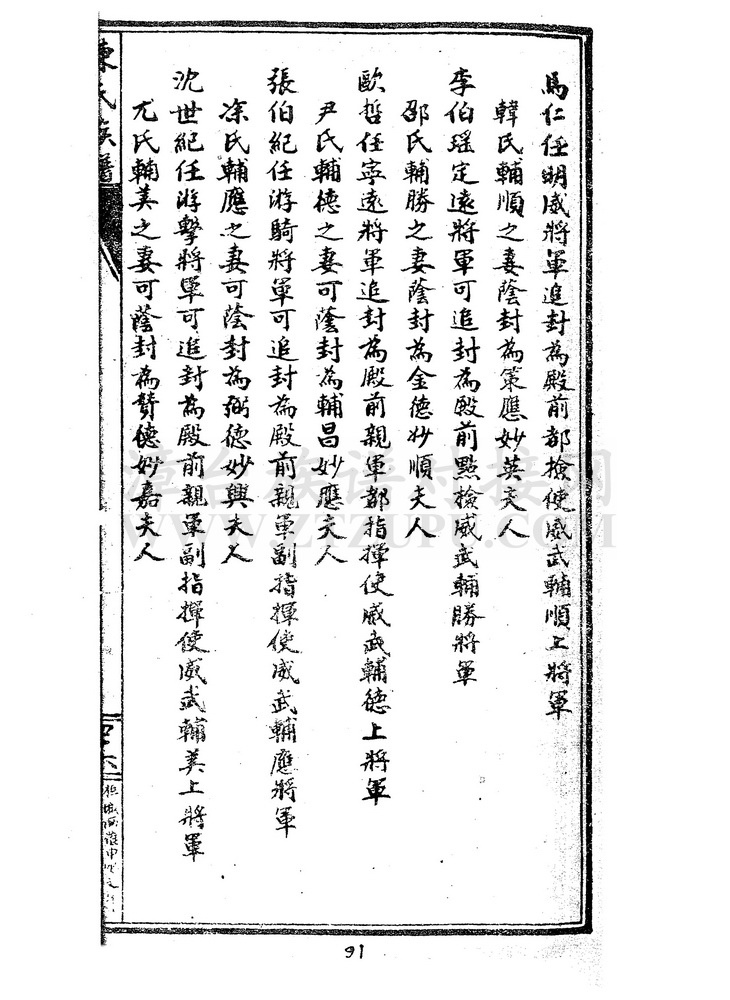 馬仁任明威將軍追封為殿前都檢使威武輔順上將軍
韓氏輔順之妻蔭封為策應妙英夫人
李伯瑤定遠將軍可追封為殿前點檢威武輔勝將軍
邵氏輔勝之妻蔭封為金德妙順夫人
歐哲任寧遠將軍追封為殿前親軍都指揮使威武輔德上將軍
尹氏輔德之妻可蔭封為輔昌妙應夫人
張伯紀任游騎將軍可追封為殿前親軍副指揮使威武輔應將軍
涂氏輔應之妻可蔭封為弼德妙興夫人
沈世紀任游擊將軍可追封為殿前親軍副指揮使威武輔美上將軍
尤氏輔美之妻可蔭封為贊德妙嘉夫人
陳氏族譜
漳台族谱对接网
WWW.ZTZUPU.COM
91